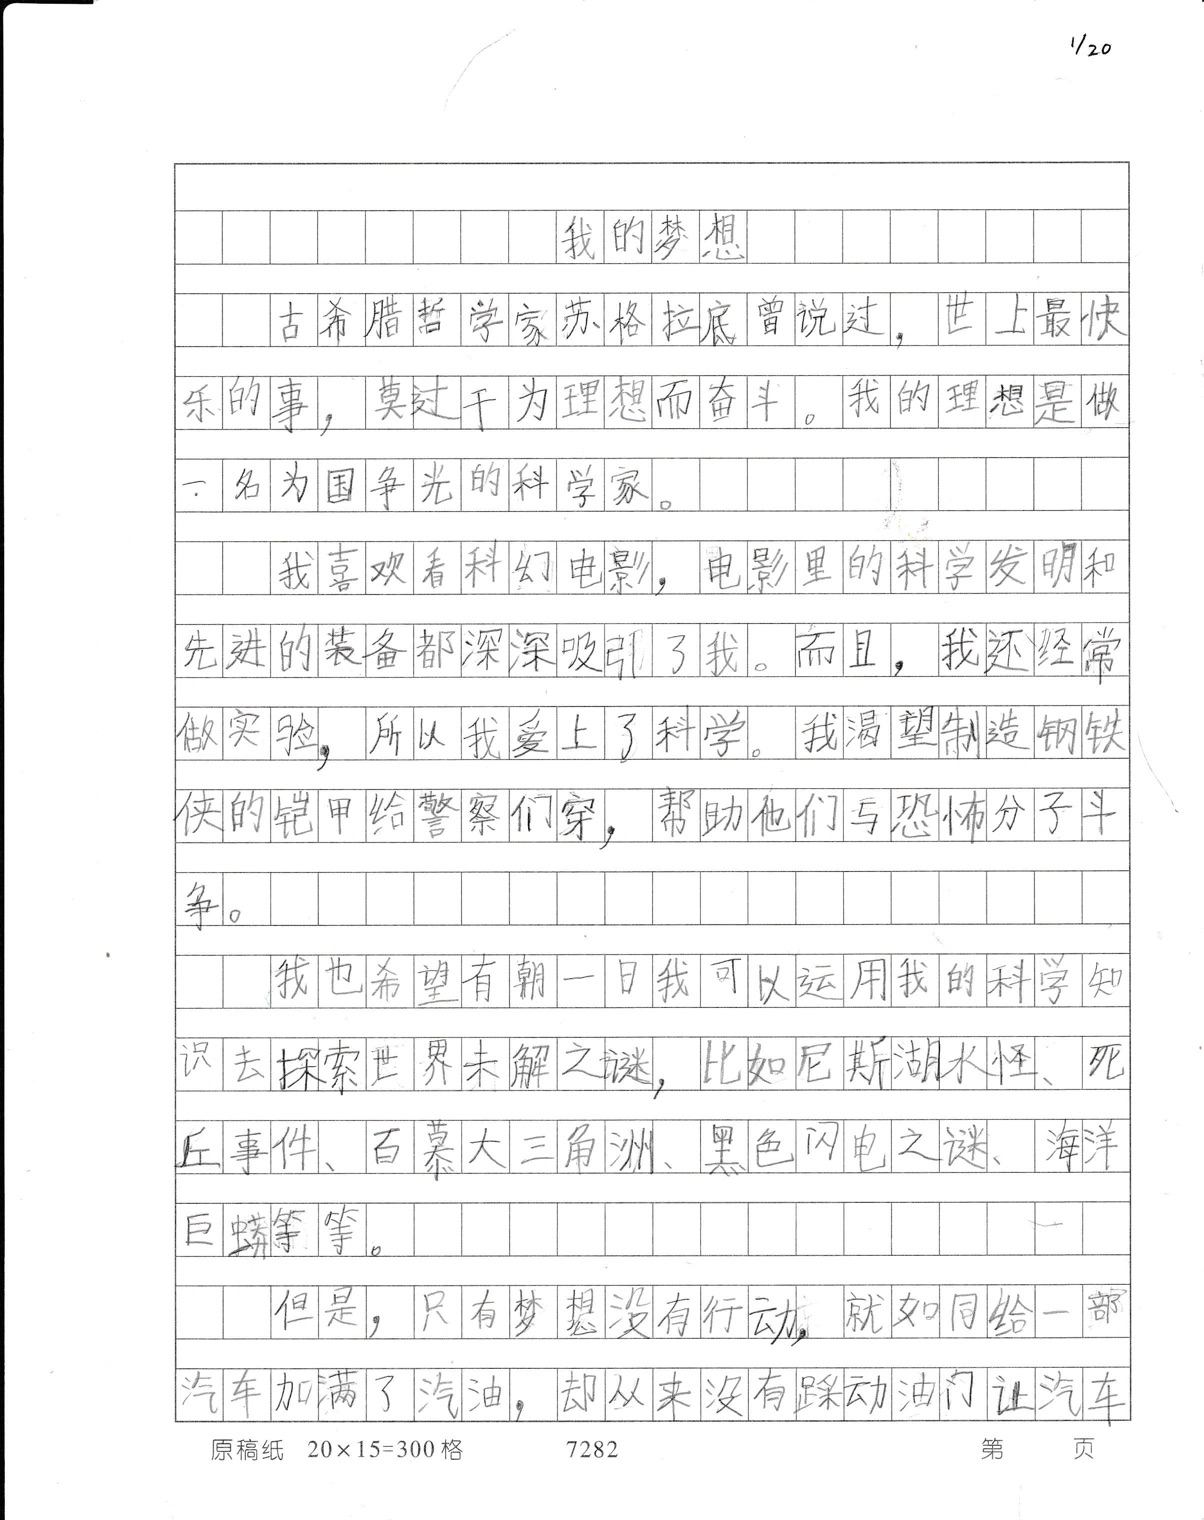 1/20
我的梦想
古希腊哲学家苏格拉底曾说过，世上最快
乐的事，莫过于为理想而奋斗。我的理想是做
一名为国争光的科学家。
我喜欢看科幻电影，电影里的科学发明和
先进的装备都深深吸引了我。而且，我还经常
做实验，所以我爱上了科学。我渴望制造钢铁
侠的铠甲给警察们穿，帮助他们与恐怖分子斗
争。
我也希望有朝一日我可以运用我的科学知
识去探索世界未解之谜，比如尼斯湖水怪、死
丘事件、百慕大三角洲、黑色闪电之谜、海洋
巨蟒等等。
但是，只有梦想没有行动，就如同给一部
汽车加满了汽油，却从来没有踩动油门让汽车
原稿纸 20×15=300格 7282 第 页